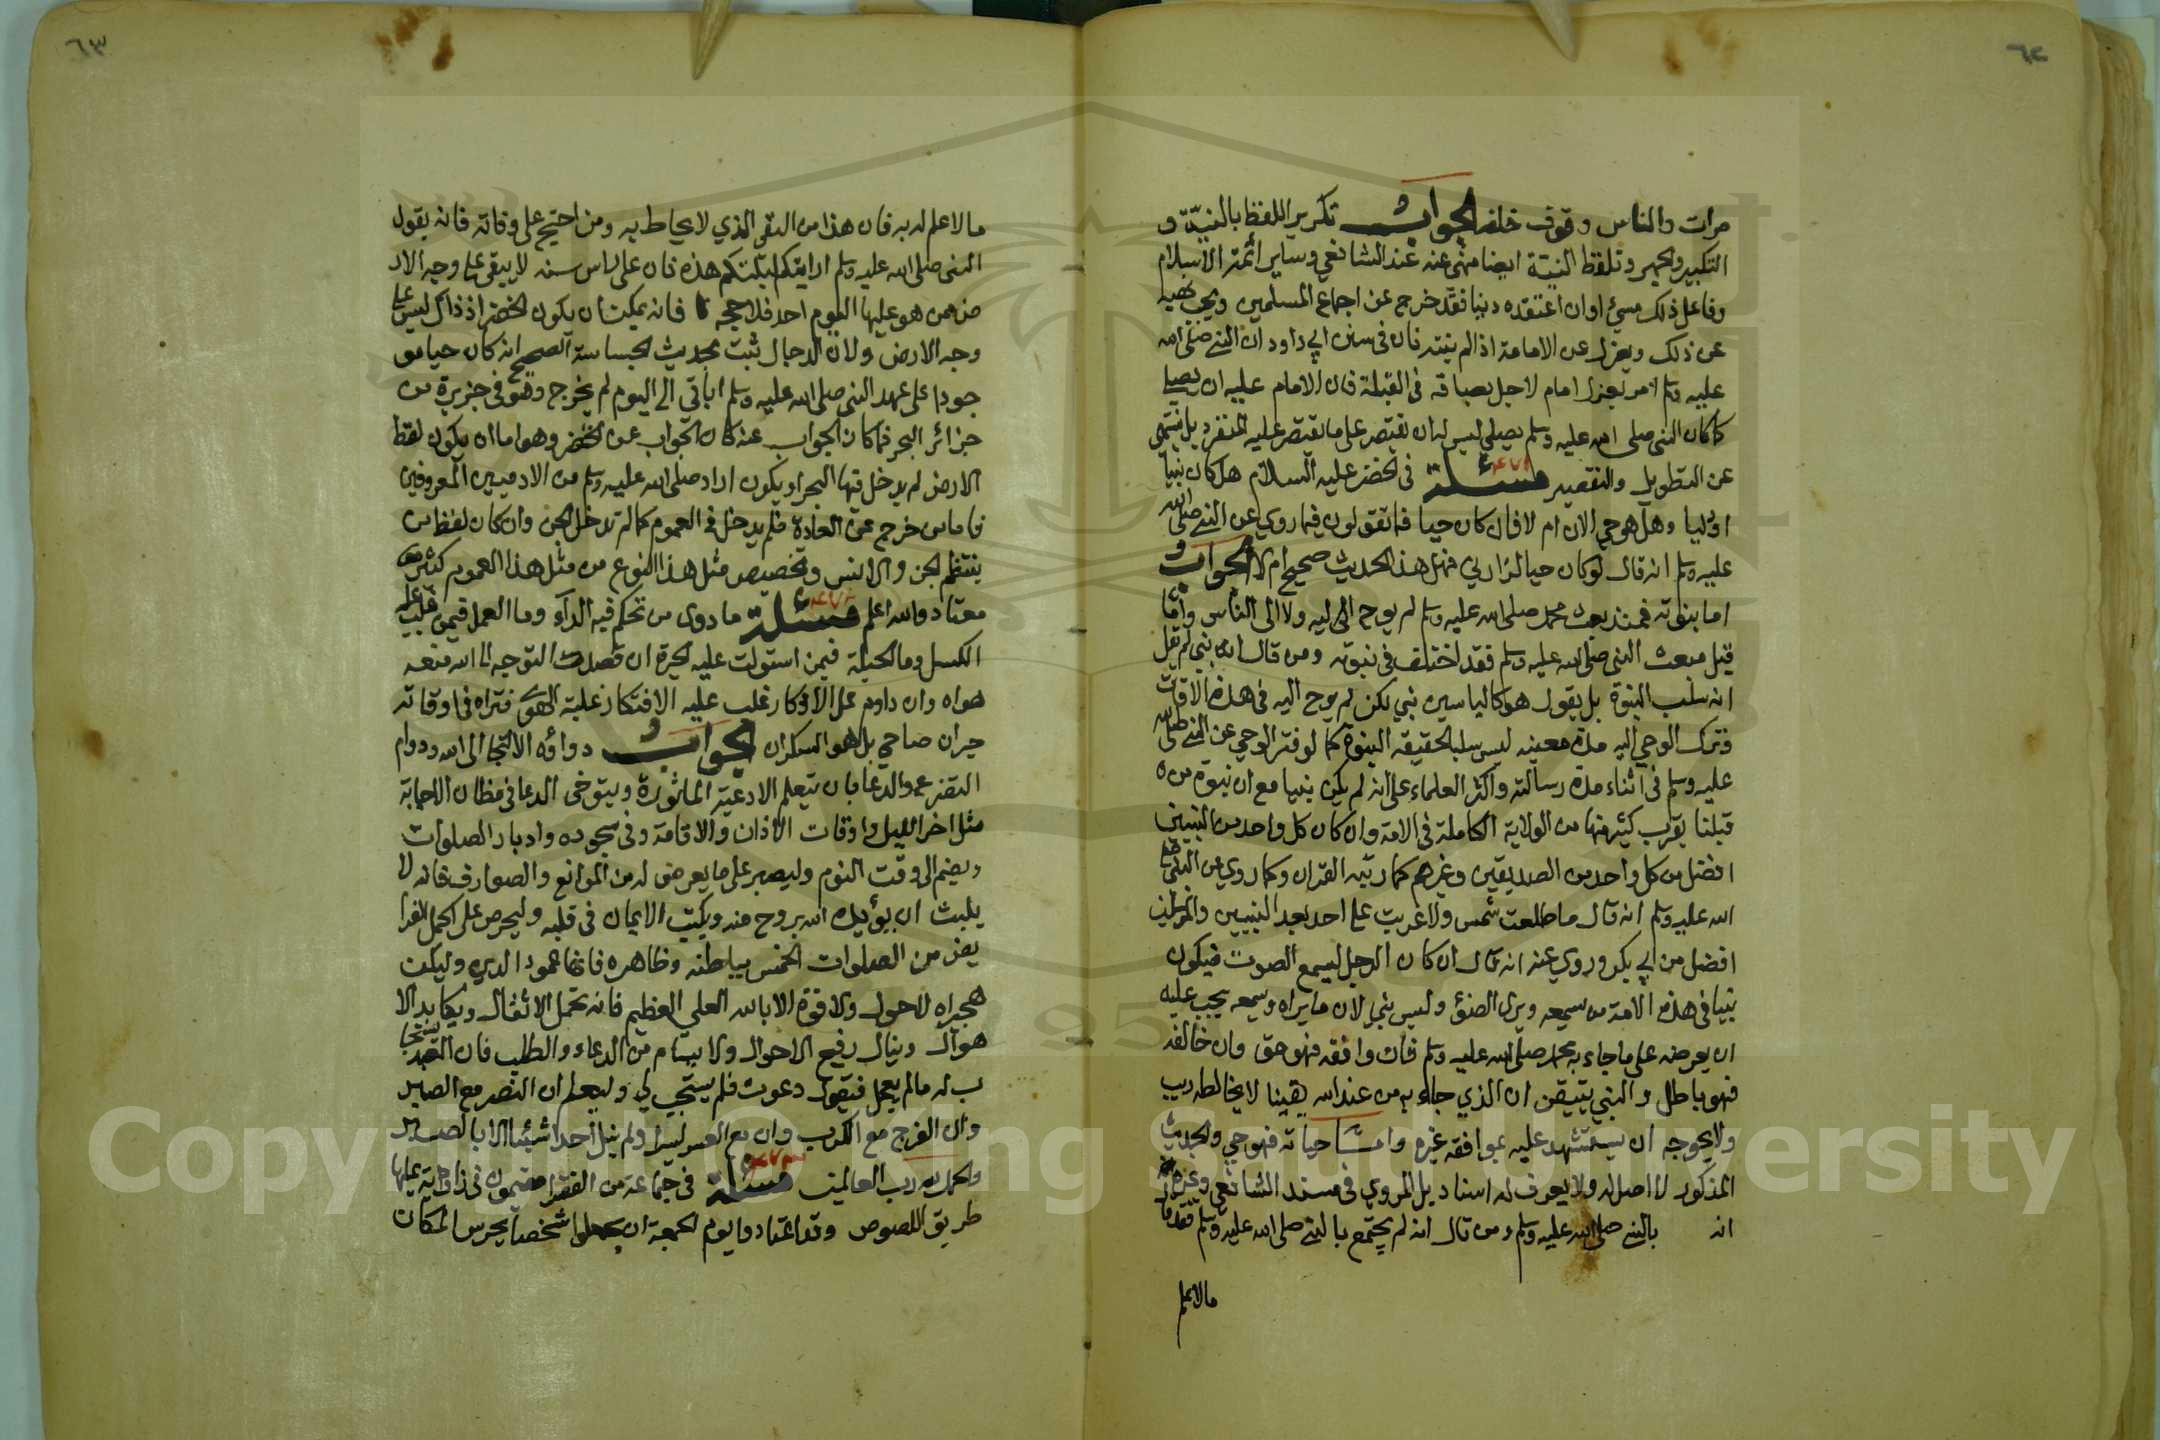 ٦٢
مرات والناس وقوف خلفه الجواب تكرير اللفظ بالنية و
التكبير والجهر وتلفظ النية ايضا منهى عنه عند الشافعي وساير ائمة الاسلام
وفاعل ذلك مسئ اوان اعتقده دينا فقد خرج عن اجماع المسلمين ويجب نهيه
عن ذلك ويعزل عن الامامة اذا لم ينته فان فى سنن ابي داود ان النبي صلى الله
عليه وسلم امر بعزل امام لاجل بصاقه فى القبلة فان الامام عليه ان يصلي
كما كان النبى صلى الله عليه وسلم يصلي ليس له ان يقتصر على ما يقتصر عليه المنفرد بل ينتهى
عن التطويل والتقصير مسئلة ٤٧١ فى الخضر عليه السلام هل كان نبيا
او وليا وهل هو حي الان ام لا فان كان حيا فما تقولون فيما روي عن النبي صلى الله
عليه وسلم انه قال لو كان حيا لزارني فهل هذا الحديث صحيح ام لا الجواب
اما بنوته فمنذ بعث محمد صلى الله عليه وسلم لم يوح اليه ولا الى الناس واما
قبل مبعث النبى صلى الله عليه وسلم فقد اختلف فى نبوته ومن قال انه نبي لم يقل
انه سلب النبوة بل يقول هو كالياسين نبي لكن لم يوح اليه فى هذه الاوقات
وترك الوحي اليه مدة معينه ليس سلبا لحقيقة النبوة كما لو فتر الوحي عن النبي صلى الله
عليه وسلم فى اثناء مدة رسالته واكثر العلماء على انه لم يكن نبيا مع ان نبوة من
قبلنا يقرب كثير منها من الولاية الكاملة فى الامة وان كان كل واحد من النبيين
افضل من كل واحد من الصديقين وغيرهم كما رتبه القران وكما روي عن النبى صلى
الله عليه وسلم انه قال ما طلعت شمس ولا غربت على احد بعد النبيين والمرسلين
افضل من ابي بكر وروي عنه انه قال ان كان الرجل ليسمع الصوت فيكون
نبيا فى هذه الامة من سيمعه ويرى الضؤ وليس بنبي لان ما يراه وسمعه يجب عليه
ان يعرضه على ما جاء به محمد صلى الله عليه وسلم فان وافقه فهو حق وان خالفه
فهو باطل والنبي يتيقن ان الذي جاء به من عند الله يقينا لا يخالطه ريب
ولا يحوجه ان يستشهد عليه بموافقة غيره وامـا حياته فهو حي والحديث
المذكور لا اصل له ولا يعرف له اسناد بل المروي فى مسند الشافعي وغيره
انه بالنبي صلى الله عليه وسلم ومن قال انه لم يجتمع بالنبي صلى الله عليه وسلم فقد قال
مالاعلم
٦٣
مالا علم له به فان هذا من النفى الذي لا يحاط به ومن احتج على وفاته فانه بقول
النبى صلى الله عليه وسلم ارايتكم ليلتكم هذه فان على راس سنه لا يبقى على وجه الار
ض ممن هو عليها اليوم احد فلا حجة فانه يمكن ان يكون الخضر اذ ذاك ليس على
وجه الارض ولان الدجال ثبت بحديث الجساسة الصحيح انه كان حيا مو
جودا على عهد النبى صلى الله عليه وسلم باقي الى اليوم لم يخرج وهو فى جزيرة من
جزائر البحر فما كان الجواب عنه كان الجواب عن الخضر وهو اما ان يكون لفظ
الارض لم يدخل فيها البحر او يكون اراد صلى الله عليه وسلم من الادميين المعروفين
فاما من خرج عن العادة فلم يدخل فى العموم كما لم تدخل الجن وان كان لفظ من
ينتظم الجن والانس وتخصيص مثل هذا النوع من مثل هذا العموم كثير
معتاد والله اعلم مسئلة ٤٧٢ ما دوى من تحكم فيه الدآء وما العمل فيمن غلب عليه
الكسل وما الحيلة فيمن استولت عليه الحيرة ان قصد التوجه الى الله منعه
هواه وان داوم على الاذكار غلب عليه الافتكار غلبة الهوى فتراه فى اوقاته
حيران صاحي بل هو السكران الجواب دواؤه الالتجا الى الله ودوام
التضرع والدعا بان يتعلم الادعية الماثورة ويتوخى الدعا فى مظان الاجابة
مثل اخر الليل واوقات الاذان والاقامة وفى سجوده وادبار الصلوات
ويضم الى وقت النوم وليصبر على ما يعرض له من الموانع والصوارف فانه لا
يلبث ان يؤيده الله بروح منه ويكتب الايمان فى قلبه وليحرص على اكمل الفرا
يض من الصلوات الخمس بباطنه وظاهره فانها عمود الدين وليكن
هجيراه لا حول ولا قوة الا بالله العلي العظيم فانه تحمل الاثقال ويكابد الا
هوال وينال رفيع الاحوال ولا يسام من الدعاء والطلب فان العبد يستجا
ب له مالم يعجل فيقول دعوت فلم يستجب لي وليعلم ان النصر مع الصبر
وان الفرج مع الكرب وان مع العسر يسرا ولم ينل احد شيئا الا بالصبر
والحمد لله رب العالمين مسئلة ٤٧٣ فى جماعة من الفقرا مقيمون فى زاوية يعلمها
طريق اللصوص وقد اعتادوا يوم الجمعة ان يجعلوا شخصا يحرس المكان
Copyright © King Saud University
1957